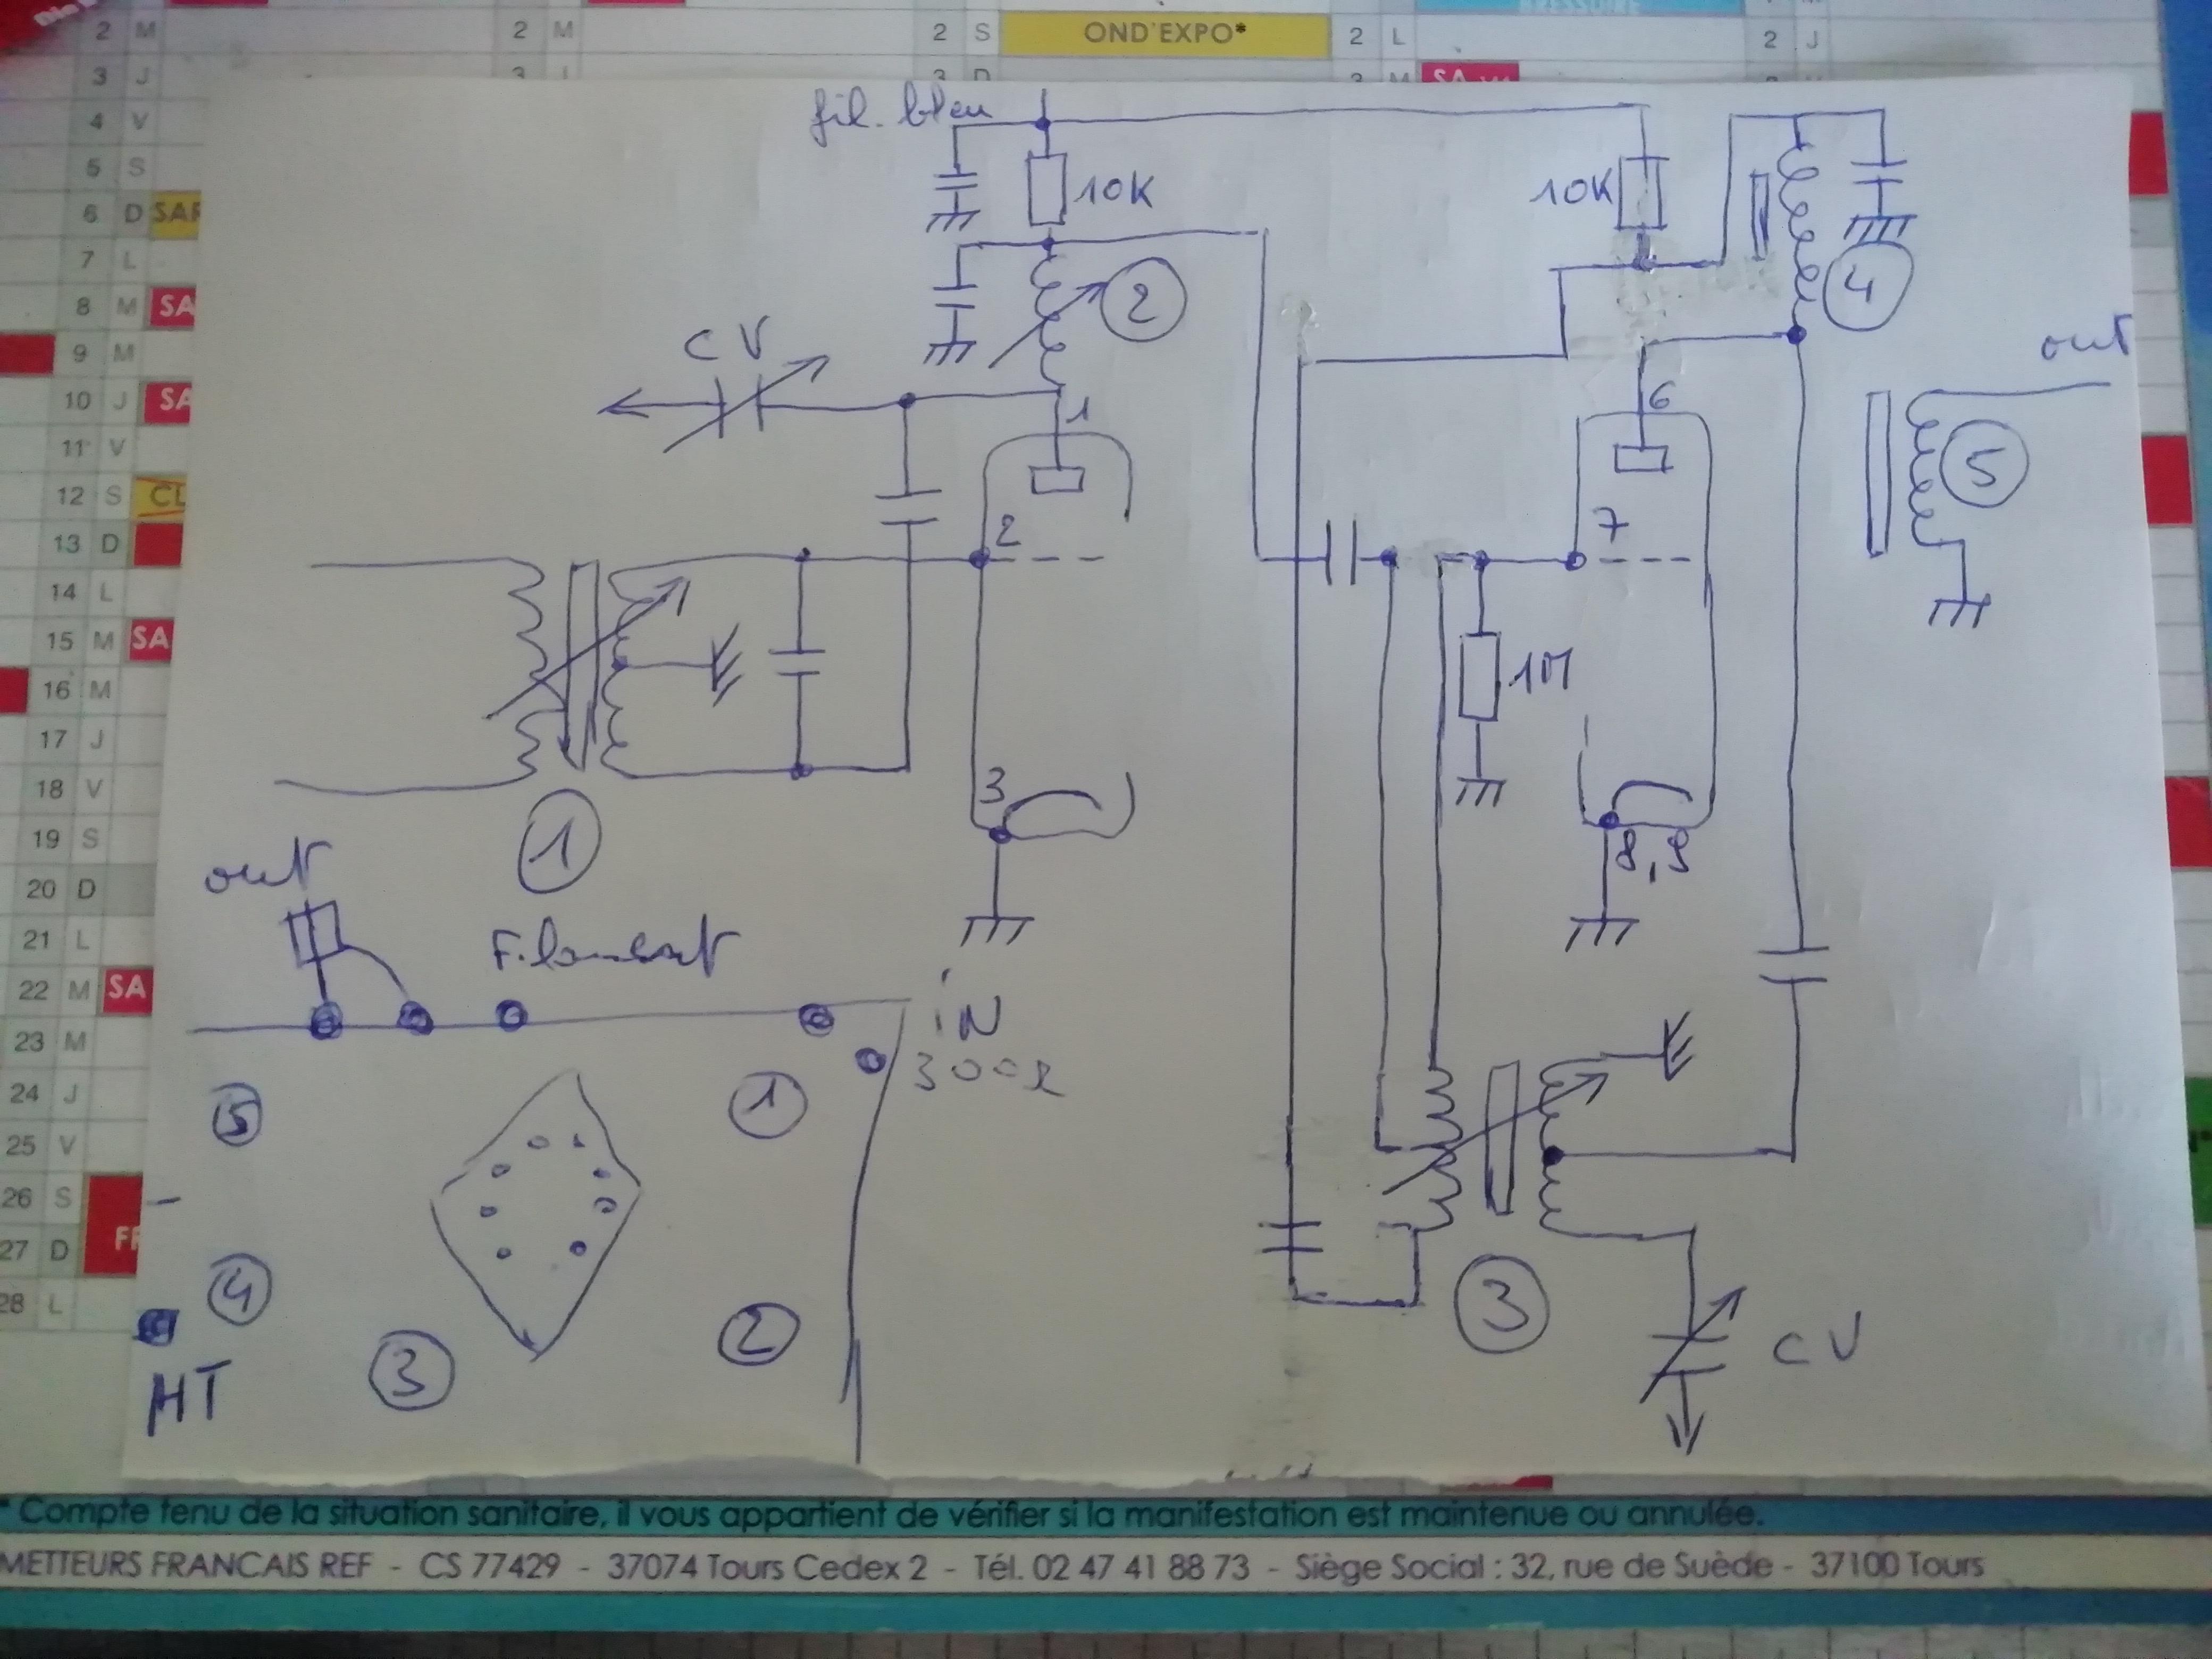 2 M
2 M
2 S OND'EXPO*
2 L
2 J
3 J
4 V
5 S
6 D SAF
7 L
8 M SA
9 M
10 J SA
11 V
12 S CL
13 D
14 L
15 M SA
16 M
17 J
18 V
19 S
20 D
21 L
22 M SA
23 M
24 J
25 V
26 S
27 D
28 L
fil. bleu
10K
10K
2
4
CV
out
1
6
5
2
7
1M
3
1
8,9
out
Filament
iN
300Ω
5
1
4
2
3
HT
3
CV
* Compte tenu de la situation sanitaire, il vous appartient de vérifier si la manifestation est maintenue ou annulée.
METTEURS FRANCAIS REF - CS 77429 - 37074 Tours Cedex 2 - Tél. 02 47 41 88 73 - Siège Social : 32, rue de Suède - 37100 Tours